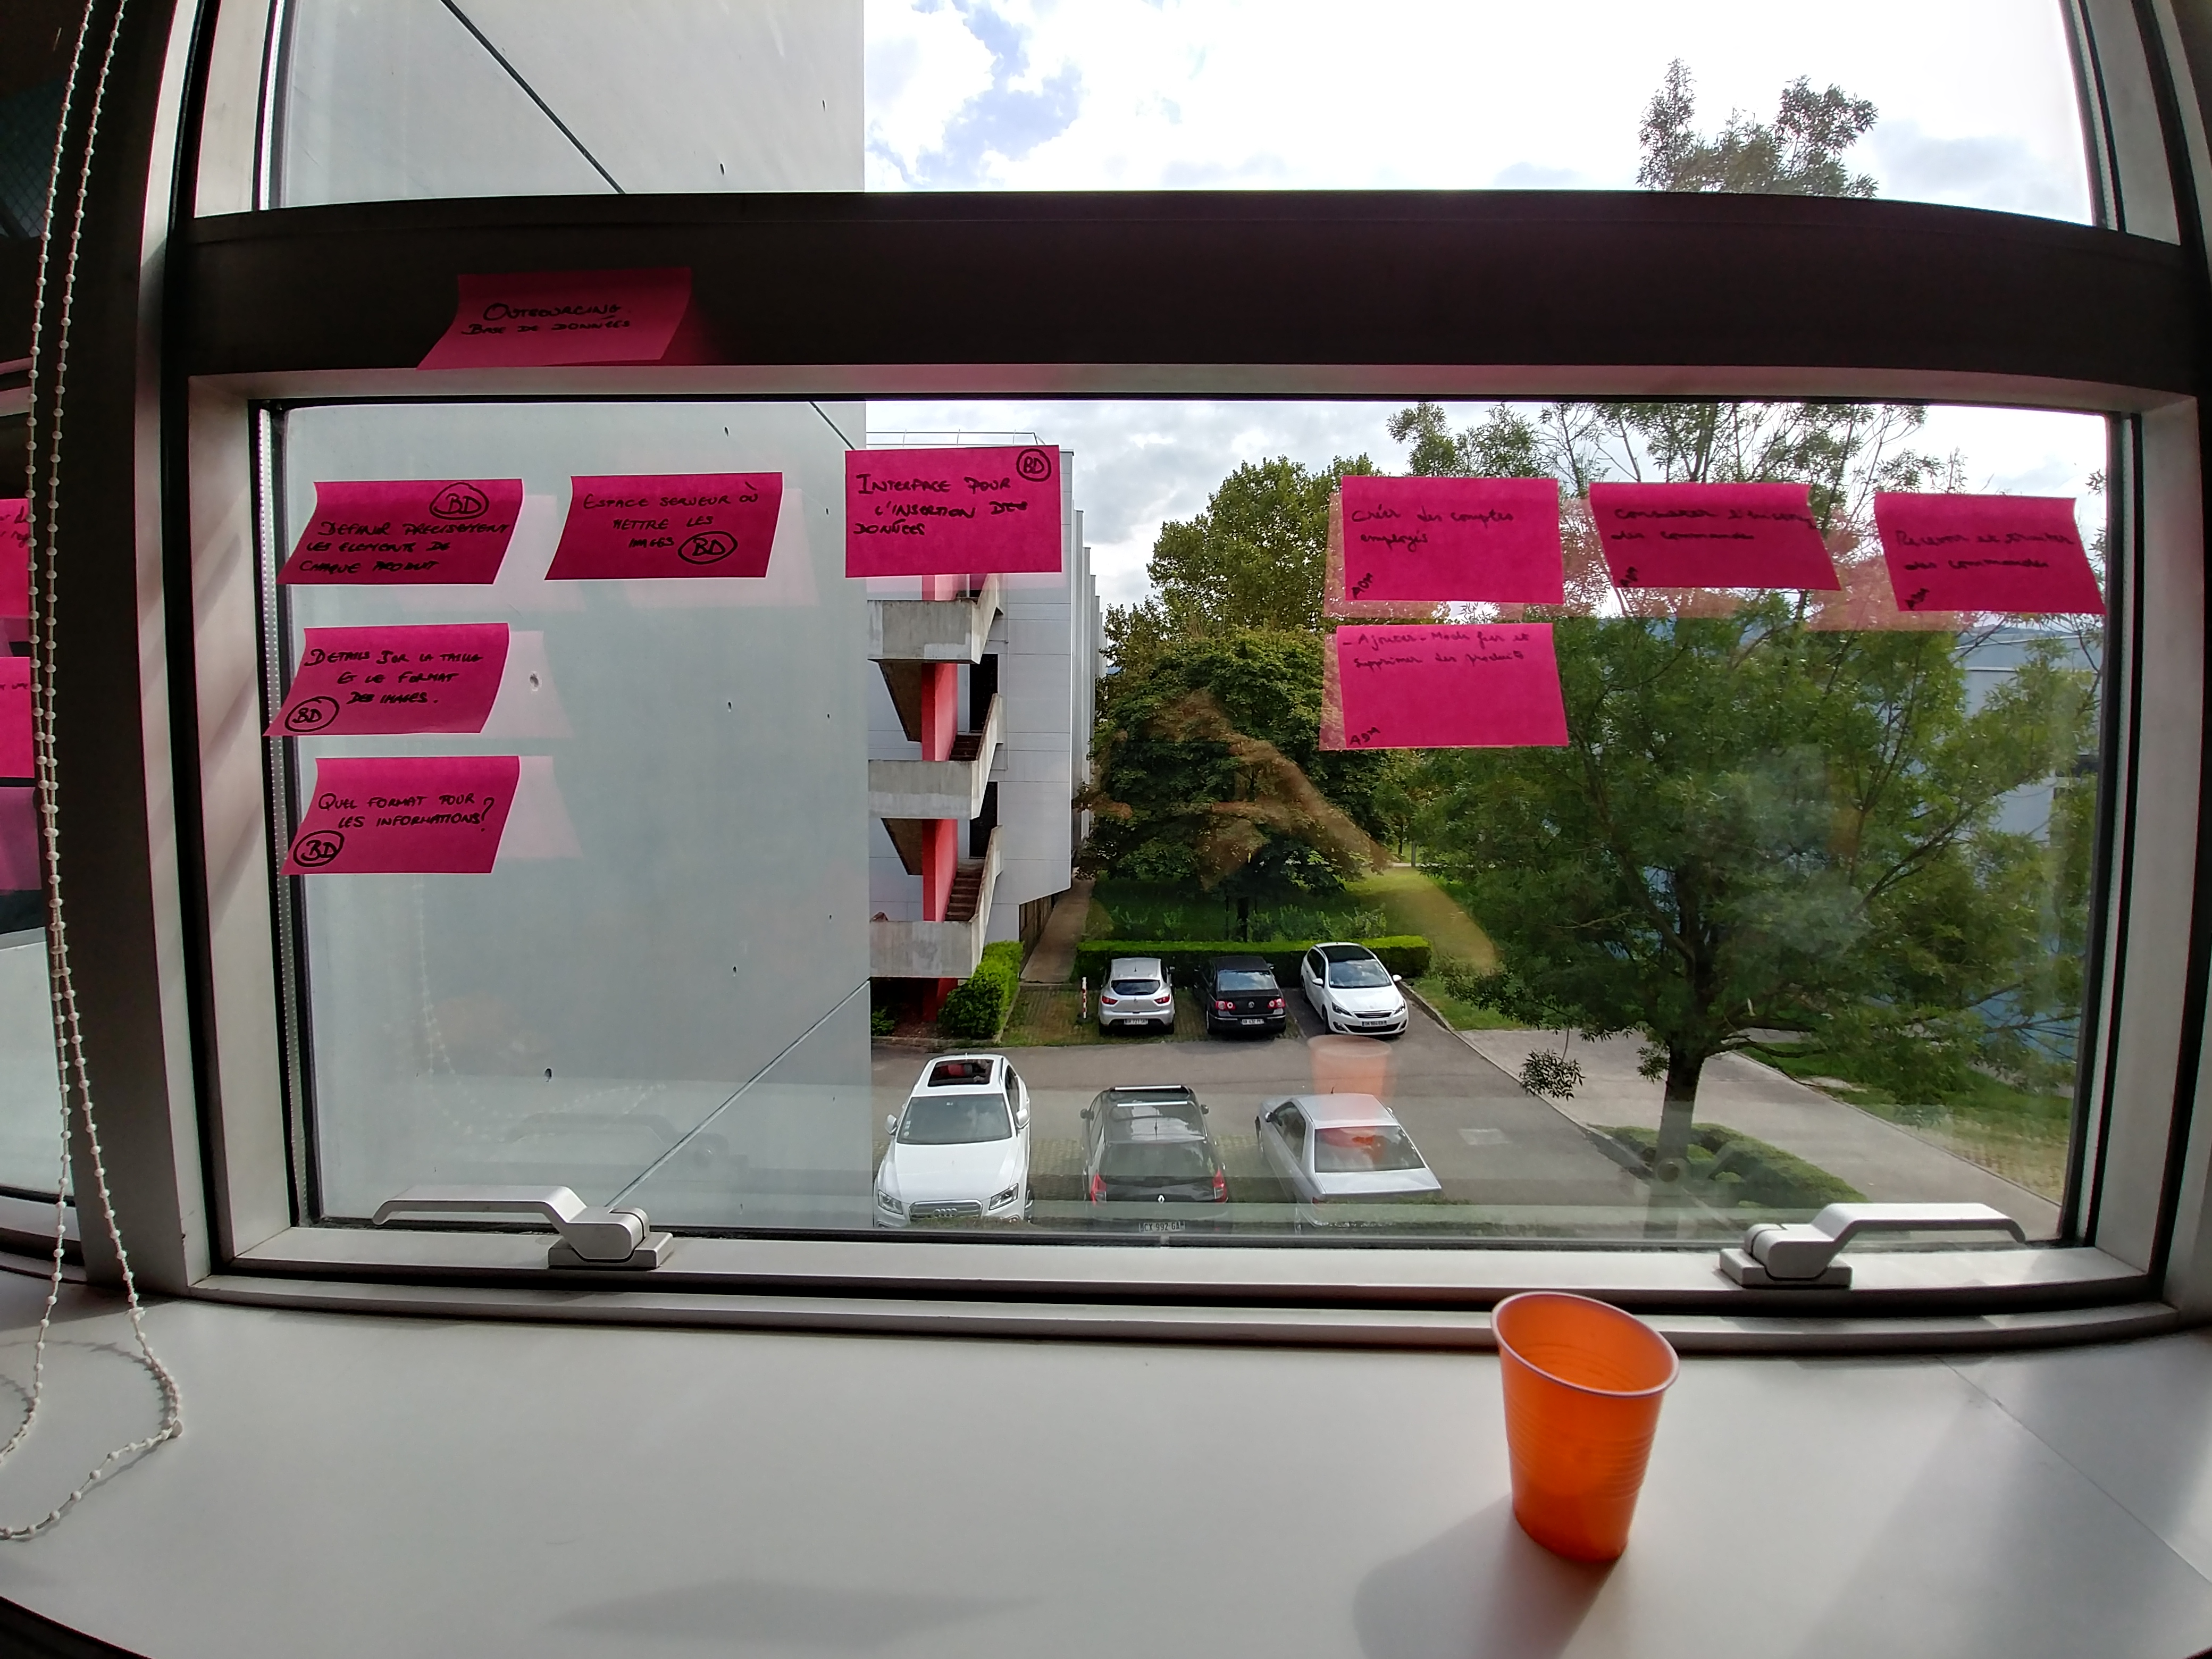 OUTSOURCING
BASE DE DONNÉES
BD
DEFINIR PRÉCISEMENT
LES ELEMENTS DE
CHAQUE PRODUIT
ESPACE SERVEUR OÙ
METTRE LES
IMAGES BD
BD
INTERFACE POUR
L'INSERTION DES
DONNÉES
Créer des comptes
employés
ADM
des commandes
ADM
Recevoir et traiter
des commandes
ADM
DETAILS SUR LA TAILLE
ET LE FORMAT
DES IMAGES.
BD
- Ajouter - Modifier et
Supprimer des produits
ADM
QUEL FORMAT POUR
LES INFORMATIONS?
BD